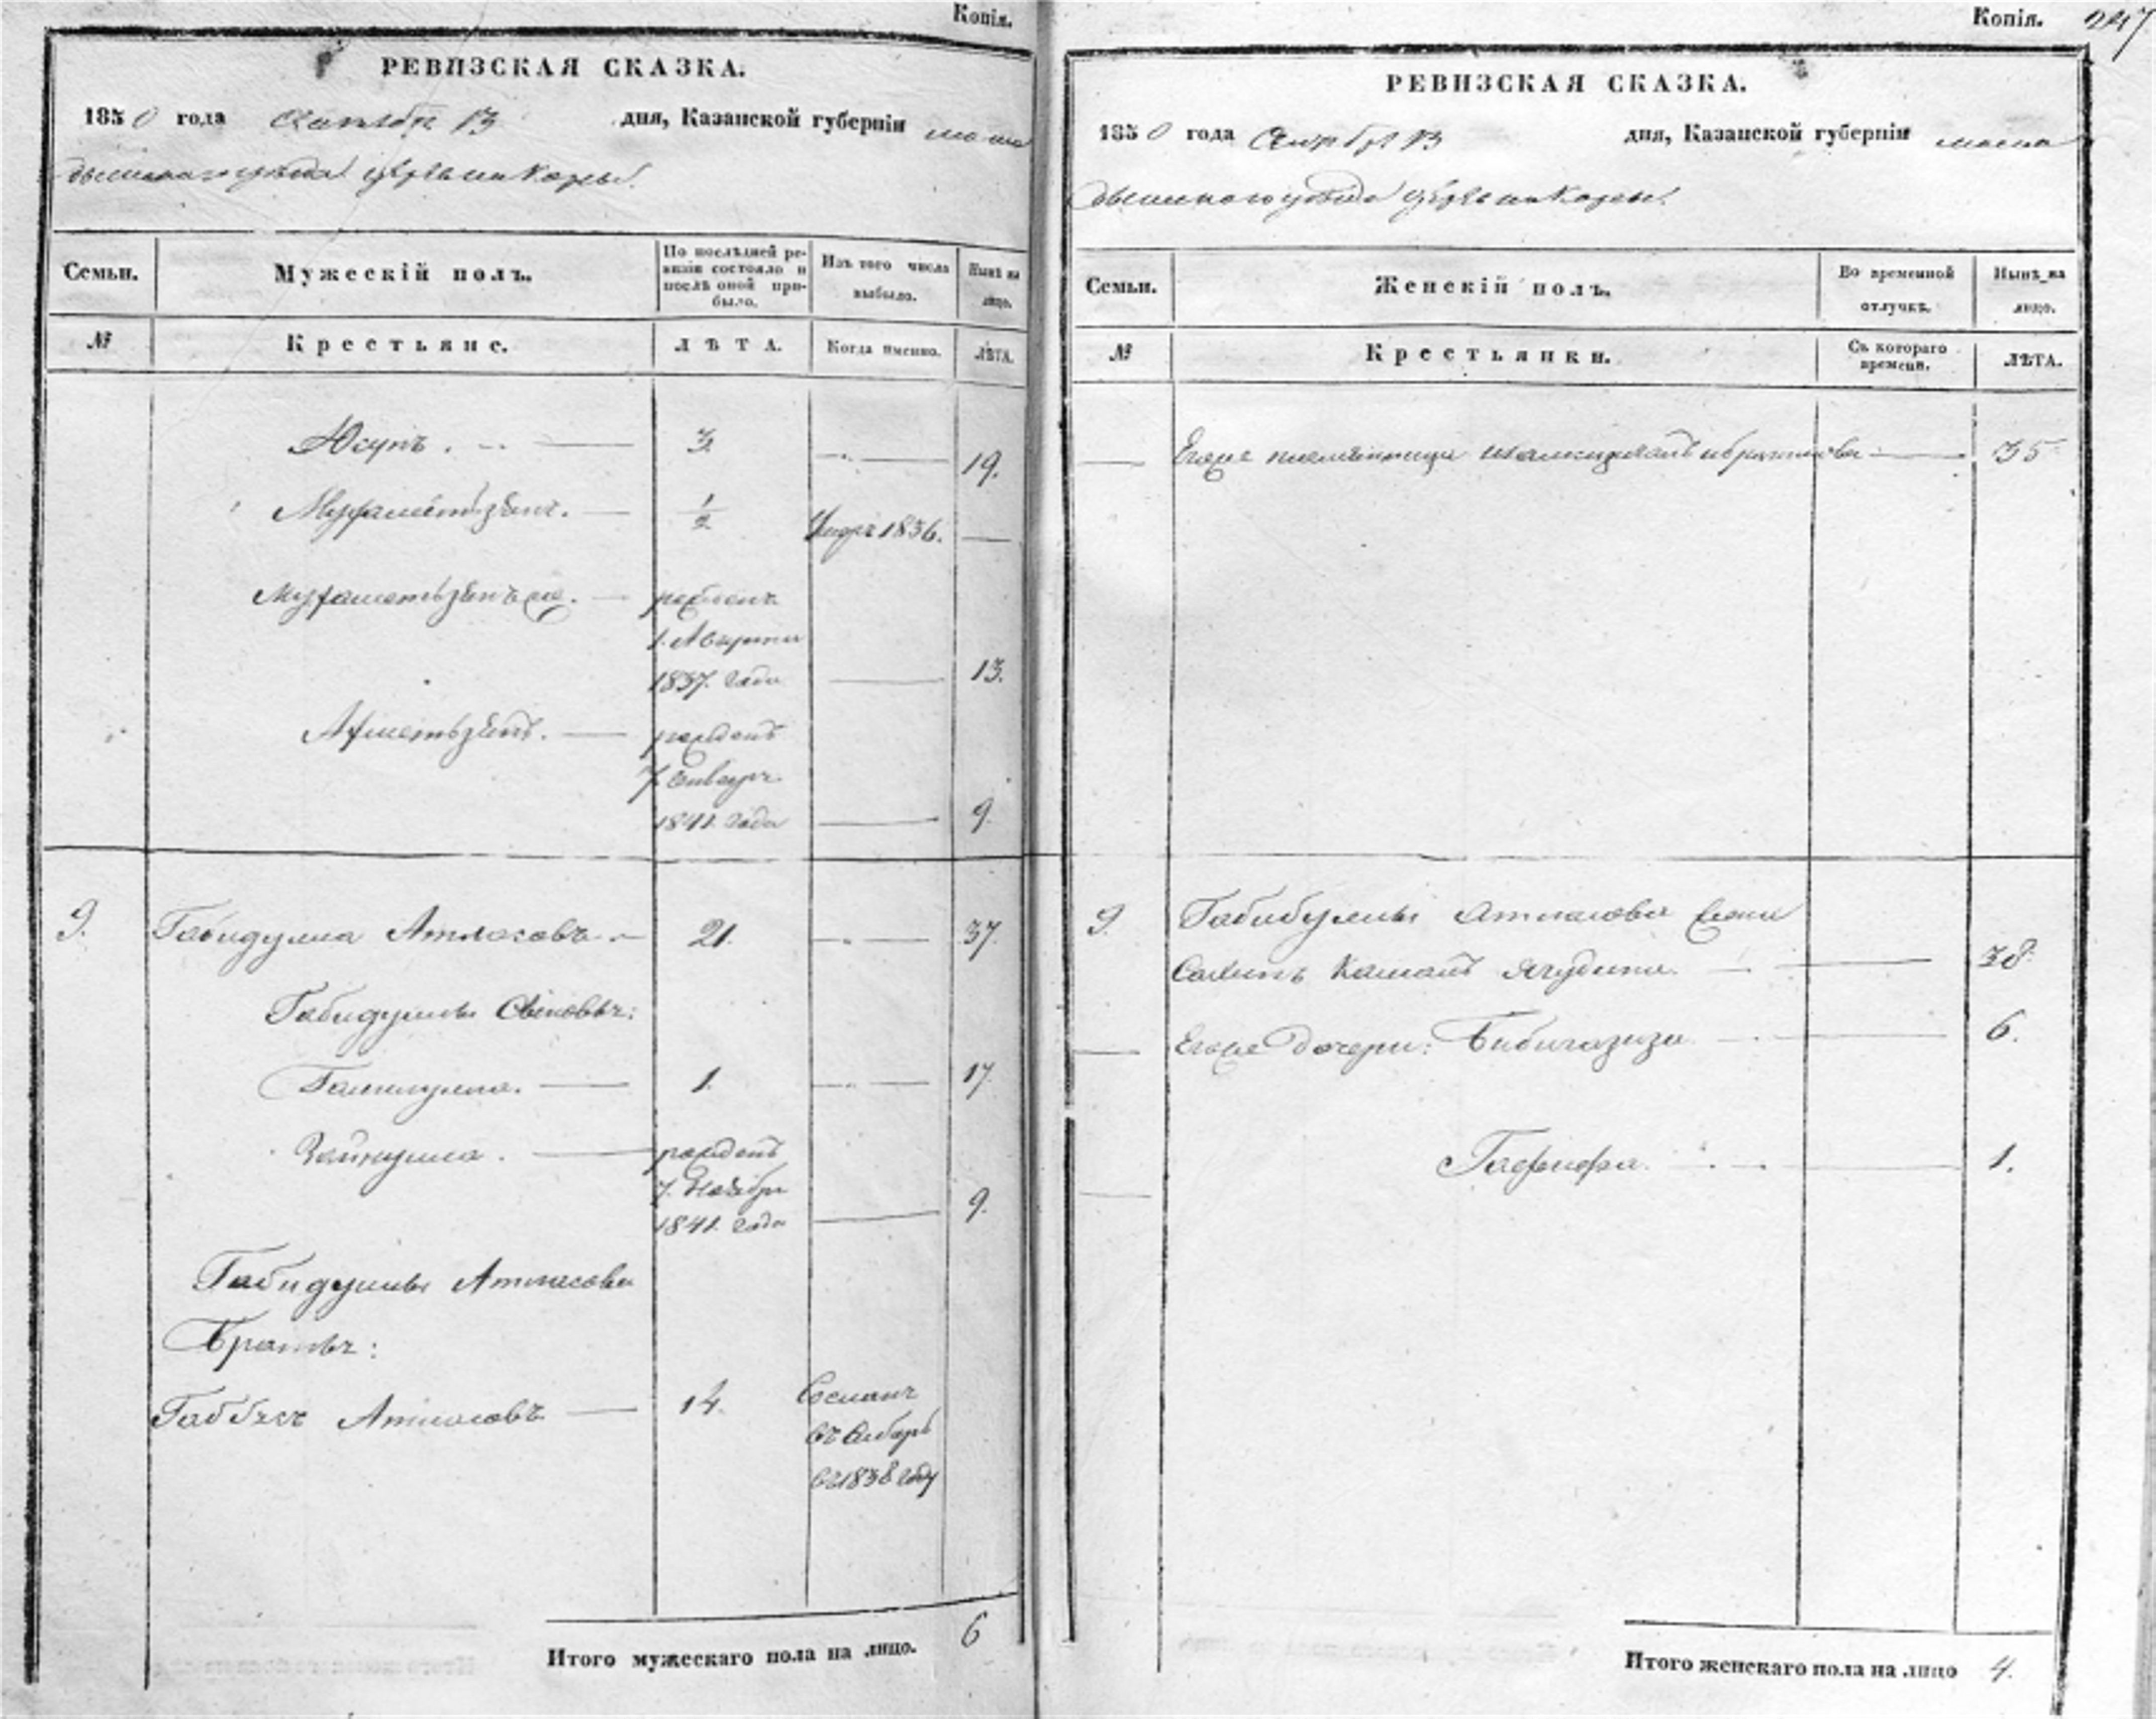 Копія.
РЕВИЗСКАЯ СКАЗКА.
1850 года Октября 13 дня, Казанской губерніи мама
дышскаго уѣзда
Семьи. Мужескій полъ. По послѣдней ревизіи состояло и послѣ оной прибыло. Изъ того числа выбыло. Нынѣ на лицо.
№ Крестьяне. ЛѢТА. Когда именно. ЛѢТА.
Юсупъ. 3. 19.
Мухаметзянъ. 1/2 Умеръ 1836.
Мухаметьзянъ рожденъ
1. Августа
1837. года 13.
Ахметьзянъ. рожденъ
7. Января
1841. года 9.
9. Габидулла Атласовъ 21. 37.
Габидуллы Сыновья:
1. 17.
Зайнулла. рожденъ
7. Ноября
1841. года 9.
Габидуллы Атласова
Братья:
Атласовъ 14. Сосланъ
въ Сибирь
въ 1838 году
Итого мужескаго пола на лицо. 6
Копія. 247
РЕВИЗСКАЯ СКАЗКА.
1850 года Октября 13 дня, Казанской губерніи мама
дышскаго уѣзда
Семьи. Женскій полъ. Во временной отлучкѣ. Нынѣ на лицо.
№ Крестьянки. Съ котораго времени. ЛѢТА.
35
9. Габидуллы Атласова жена
Ягудина 38.
Егоже дочери: Бибигазиза 6.
1.
Итого женскаго пола на лицо 4.